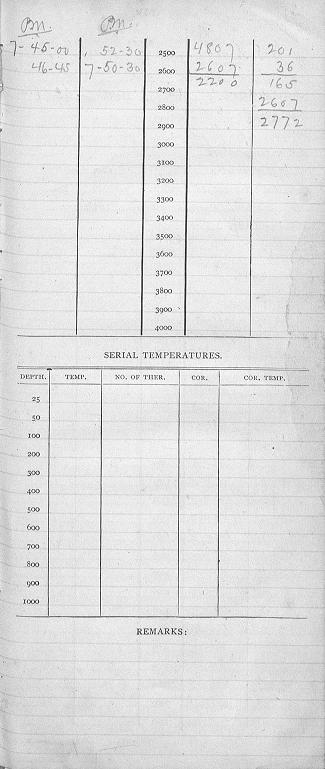 P.M. P.M.
7-45-00 52-30 2500 4807 201
46-45 7-50-30 2600 2607 36
2700 2200 165
2800 2607
2900 2772
3000
3100
3200
3300
3400
3500
3600
3700
3800
3900
4000
SERIAL TEMPERATURES.
DEPTH. TEMP. NO. OF THER. COR. COR. TEMP.
25
50
100
200
300
400
500
600
700
800
900
1000
REMARKS: